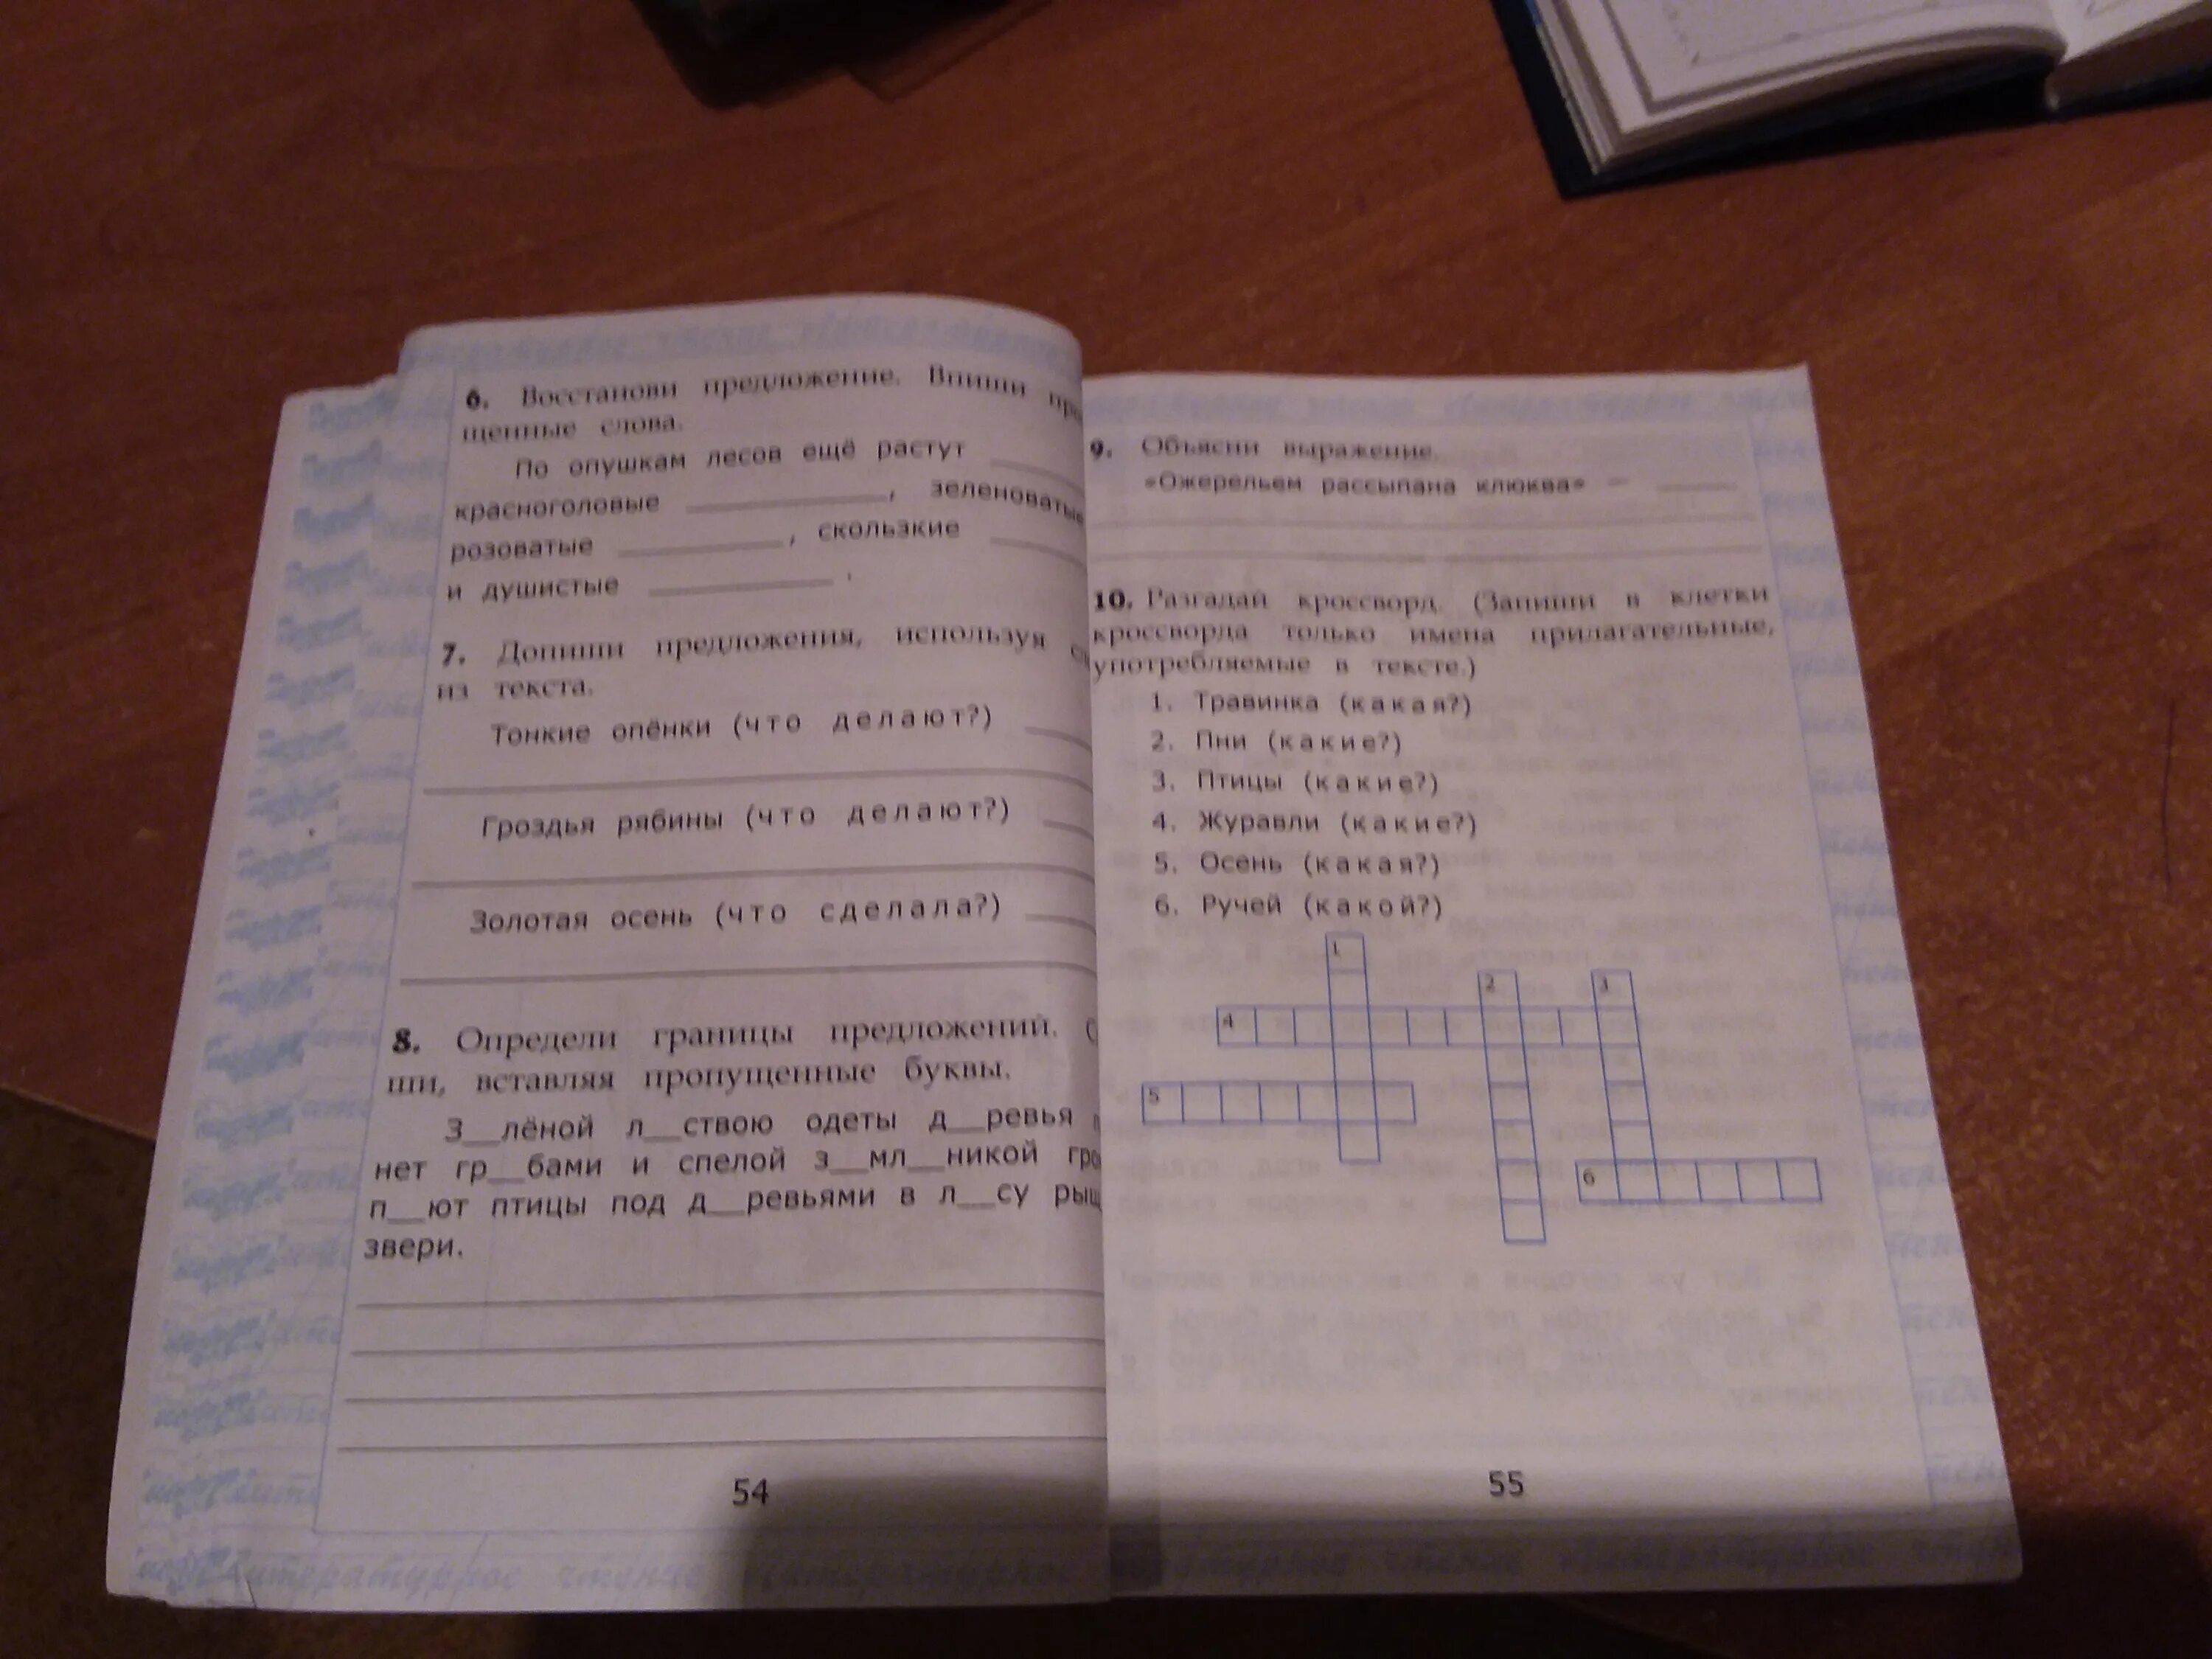 6. Восстанови предложение. Впиши про
щенные слова.
По опушкам лесов ещё растут
красноголовые ____, зеленоватые
розоватые ____, скользкие
и душистые ____.
7. Допиши предложения, используя
из текста.
Тонкие опёнки (что делают?)
Гроздья рябины (что делают?)
Золотая осень (что сделала?)
8. Определи границы предложений.
ши, вставляя пропущенные буквы.
З__лёной л__ствою одеты д__ревья
нет гр__бами и спелой з__мл__никой гро
п__ют птицы под д__ревьями в л__су рыщ
звери.
54
9. Объясни выражение.
«Ожерельем рассыпана клюква» —
10. Разгадай кроссворд. (Запиши в клетки
кроссворда только имена прилагательные,
употребляемые в тексте.)
1. Травинка (какая?)
2. Пни (какие?)
3. Птицы (какие?)
4. Журавли (какие?)
5. Осень (какая?)
6. Ручей (какой?)
1
2 3
4
5
6
55